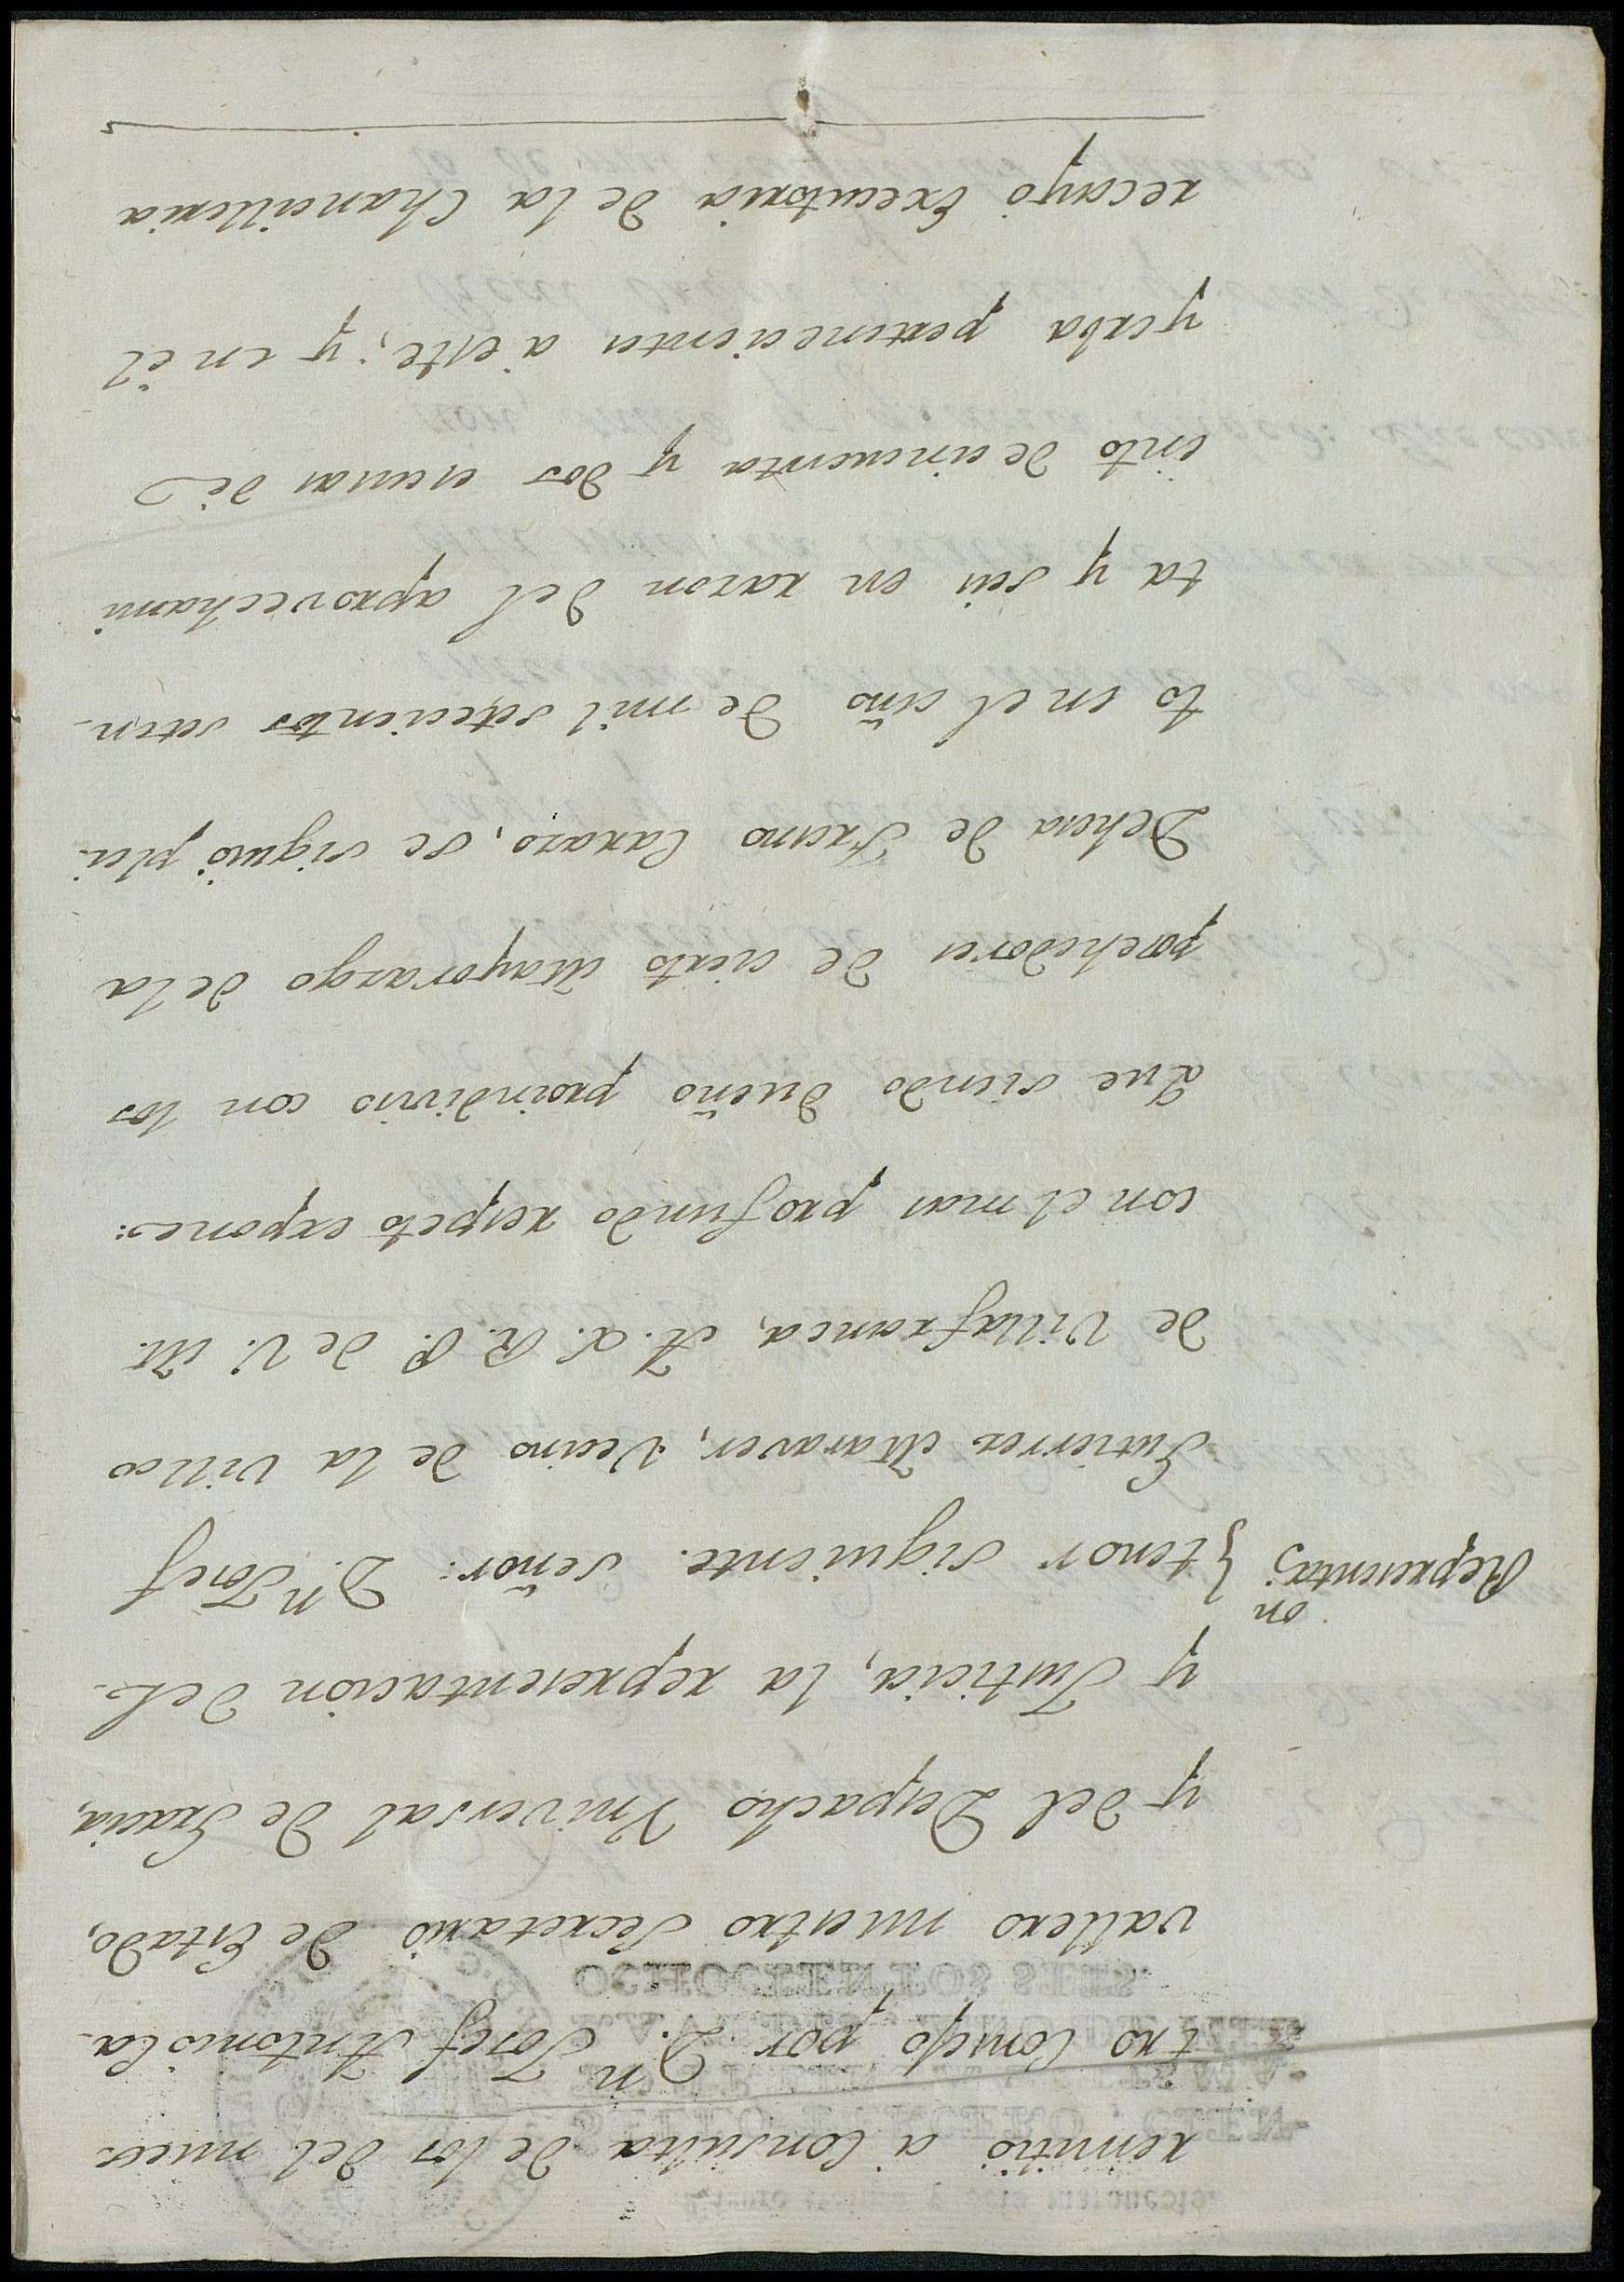 remitió a consulta de los del nues-
tro Consejo por D.n Josef Antonio Ca-
vallero nuestro Secretario de Estado,
y del Despacho Vniversal de Gracia,
y Justicia, la representacion del
Representaz.on } tenor siguiente. Señor: D.n Josef
Gutierrez Maraver, Vecino de la Villa
de Villafranca, A. L. R. P. de V. M.
con el mas profundo respeto expone:
Que siendo dueño proindiviso con los
posehedores de cierto Mayorazgo de la
Dehesa de Fresno Caraso, se siguió plei-
to en el año de mil setecientos seten-
ta y seis en razon del aprovechami
ento de cincuenta y dos escusas de
yerba pertenecientes a este; y en él
recayó Executoria de la Chancilleria